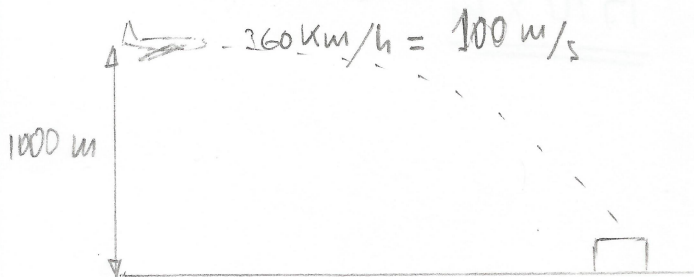 360 Km/h = 100 m/s
1000 m